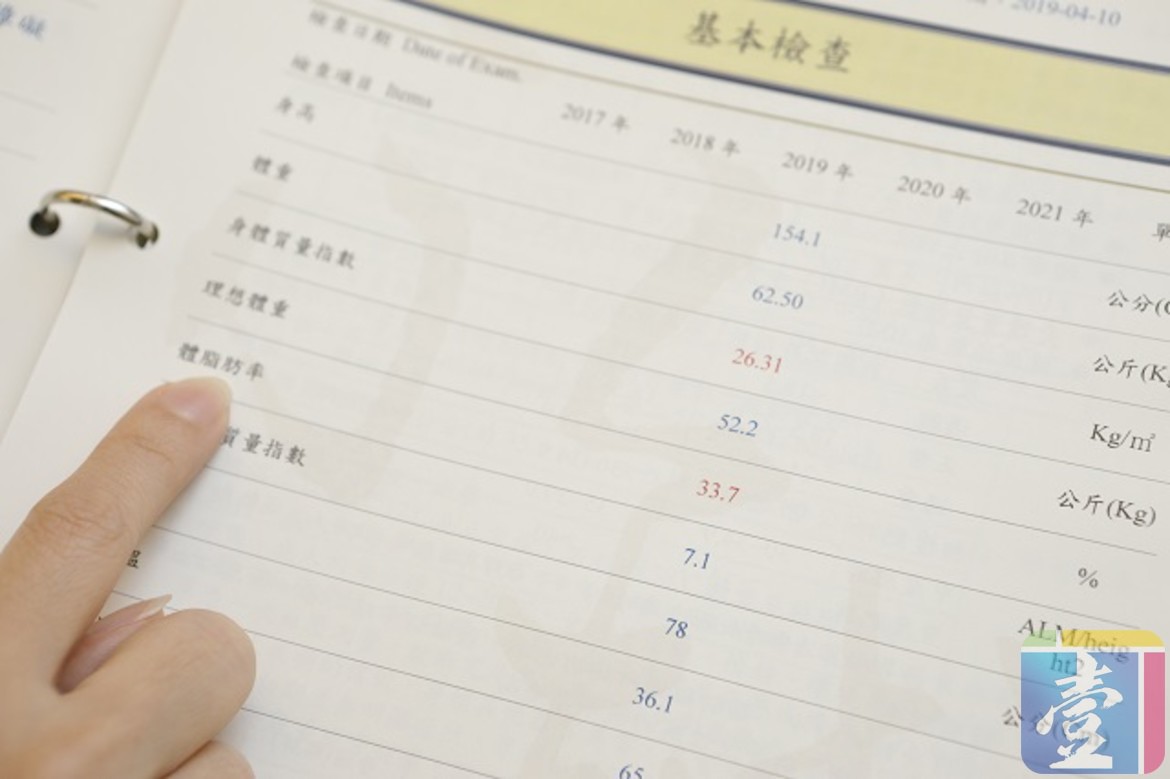 2019-04-10
基本檢查
檢查日期 Date of Exam.
檢查項目 Items 2017 年 2018 年 2019 年 2020 年 2021 年 單
身高 154.1 公分(C
體重 62.50 公斤(Kg
身體質量指數 26.31 Kg/㎡
理想體重 52.2 公斤(Kg)
體脂肪率 33.7 %
質量指數 7.1 ALM/heig
ht2
78 公分
溫 36.1
65
壹